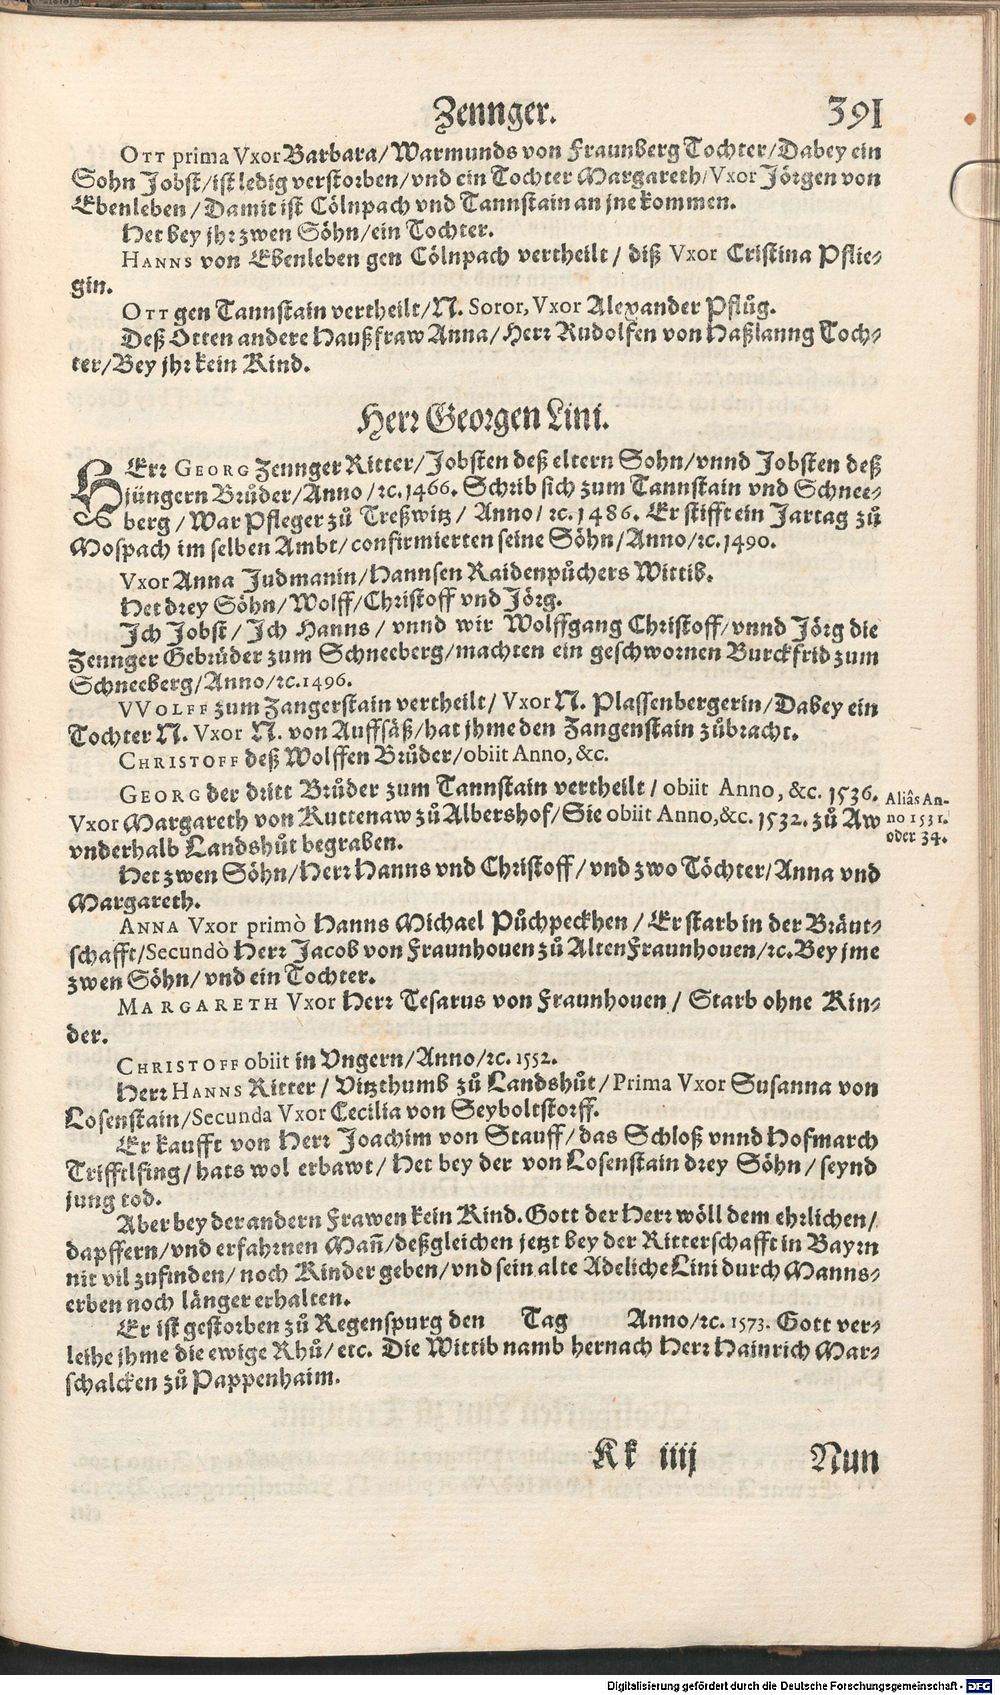 Zennger. 391
OTT prima Vxor Barbara/Warmunds von Fraunberg Tochter/Dabey ein
Sohn Jobst/ist ledig verstorben/vnd ein Tochter Margareth/Vxor Jörgen von
Ebenleben/Damit ist Cölnpach vnd Tannstain an jne kommen.
Het bey jhr zwen Söhn/ein Tochter.
HANNS von Ebenleben gen Cölnpach vertheilt/ diß Vxor Cristina Pflie-
gin.
OTT gen Tannstain vertheilt/N. Soror, Vxor Alexander Pflůg.
Deß Otten andere Haußfraw Anna/Herr Rudolfen von Haßlanng Toch-
ter/Bey jhr kein Kind.
Herr Georgen Lini.
HErr GEORG Zennger Ritter/Jobsten deß eltern Sohn/vnnd Jobsten deß
jüngern Brůder/Anno/ꝛc.1466. Schrib sich zum Tannstain vnd Schnee-
berg/War Pfleger zů Treßwitz/ Anno/ꝛc.1486. Er stifft ein Jartag zů
Mospach im selben Ambt/confirmierten seine Söhn/Anno/ꝛc.1490.
Vxor Anna Judmanin/Hannsen Raidenpůchers Wittib.
Het drey Söhn/Wolff/Christoff vnd Jörg.
Jch Jobst/ Jch Hanns/ vnnd wir Wolffgang Christoff/vnnd Jörg die
Zennger Gebrůder zum Schneeberg/machten ein geschwornen Burckfrid zum
Schneeberg/Anno/ꝛc.1496.
VVOLFF zum Zangerstain vertheilt/ Vxor N. Plassenbergerin/Dabey ein
Tochter N. Vxor N. von Auffsäß/hat jhme den Zangenstain zůbracht.
CHRISTOFF deß Wolffen Brůder/obiit Anno, &c.
GEORG der dritt Brůder zum Tannstain vertheilt/ obiit Anno, &c. 1536.
Vxor Margareth von Ruttenaw zů Albershof/Sie obiit Anno,&c. 1532. zů Aw
vnderhalb Landshůt begraben.
Aliâs An-
no 1531.
oder 34.
Het zwen Söhn/Herr Hanns vnd Christoff/vnd zwo Töchter/Anna vnd
Margareth.
ANNA Vxor primò Hanns Michael Půchpeckhen/ Er starb in der Bräut-
schafft/Secundò Herr Jacob von Fraunhouen zů Alten Fraunhouen/ꝛc.Bey jme
zwen Söhn/vnd ein Tochter.
MARGARETH Vxor Herr Tesarus von Fraunhouen/ Starb ohne Kin-
der.
CHRISTOFF obiit in Vngern/Anno/ꝛc. 1552.
Herr HANNS Ritter/ Vitzthumb zů Landshůt/Prima Vxor Susanna von
Losenstain/Secunda Vxor Cecilia von Seyboltstorff.
Er kaufft von Herr Joachim von Stauff/das Schloß vnnd Hofmarch
Triffflfing/hats wol erbawt/ Het bey der von Losenstain drey Söhn/ seynd
jung tod.
Aber bey der andern Frawen kein Kind. Gott der Herr wöll dem ehrlichen/
dapffern/vnd erfahrnen Mañ/deßgleichen jetzt bey der Ritterschafft in Bayrn
nit vil zufinden/noch Kinder geben/vnd sein alte Adeliche Lini durch Manns-
erben noch länger erhalten.
Er ist gestorben zů Regenspurg den Tag Anno/ꝛc. 1573. Gott ver-
leihe jhme die ewige Rhů/etc. Die Wittib namb hernach Herr Hainrich Mar-
schalcken zů Pappenhaim.
Kk iiij Nun
Digitalisierung gefördert durch die Deutsche Forschungsgemeinschaft - DFG